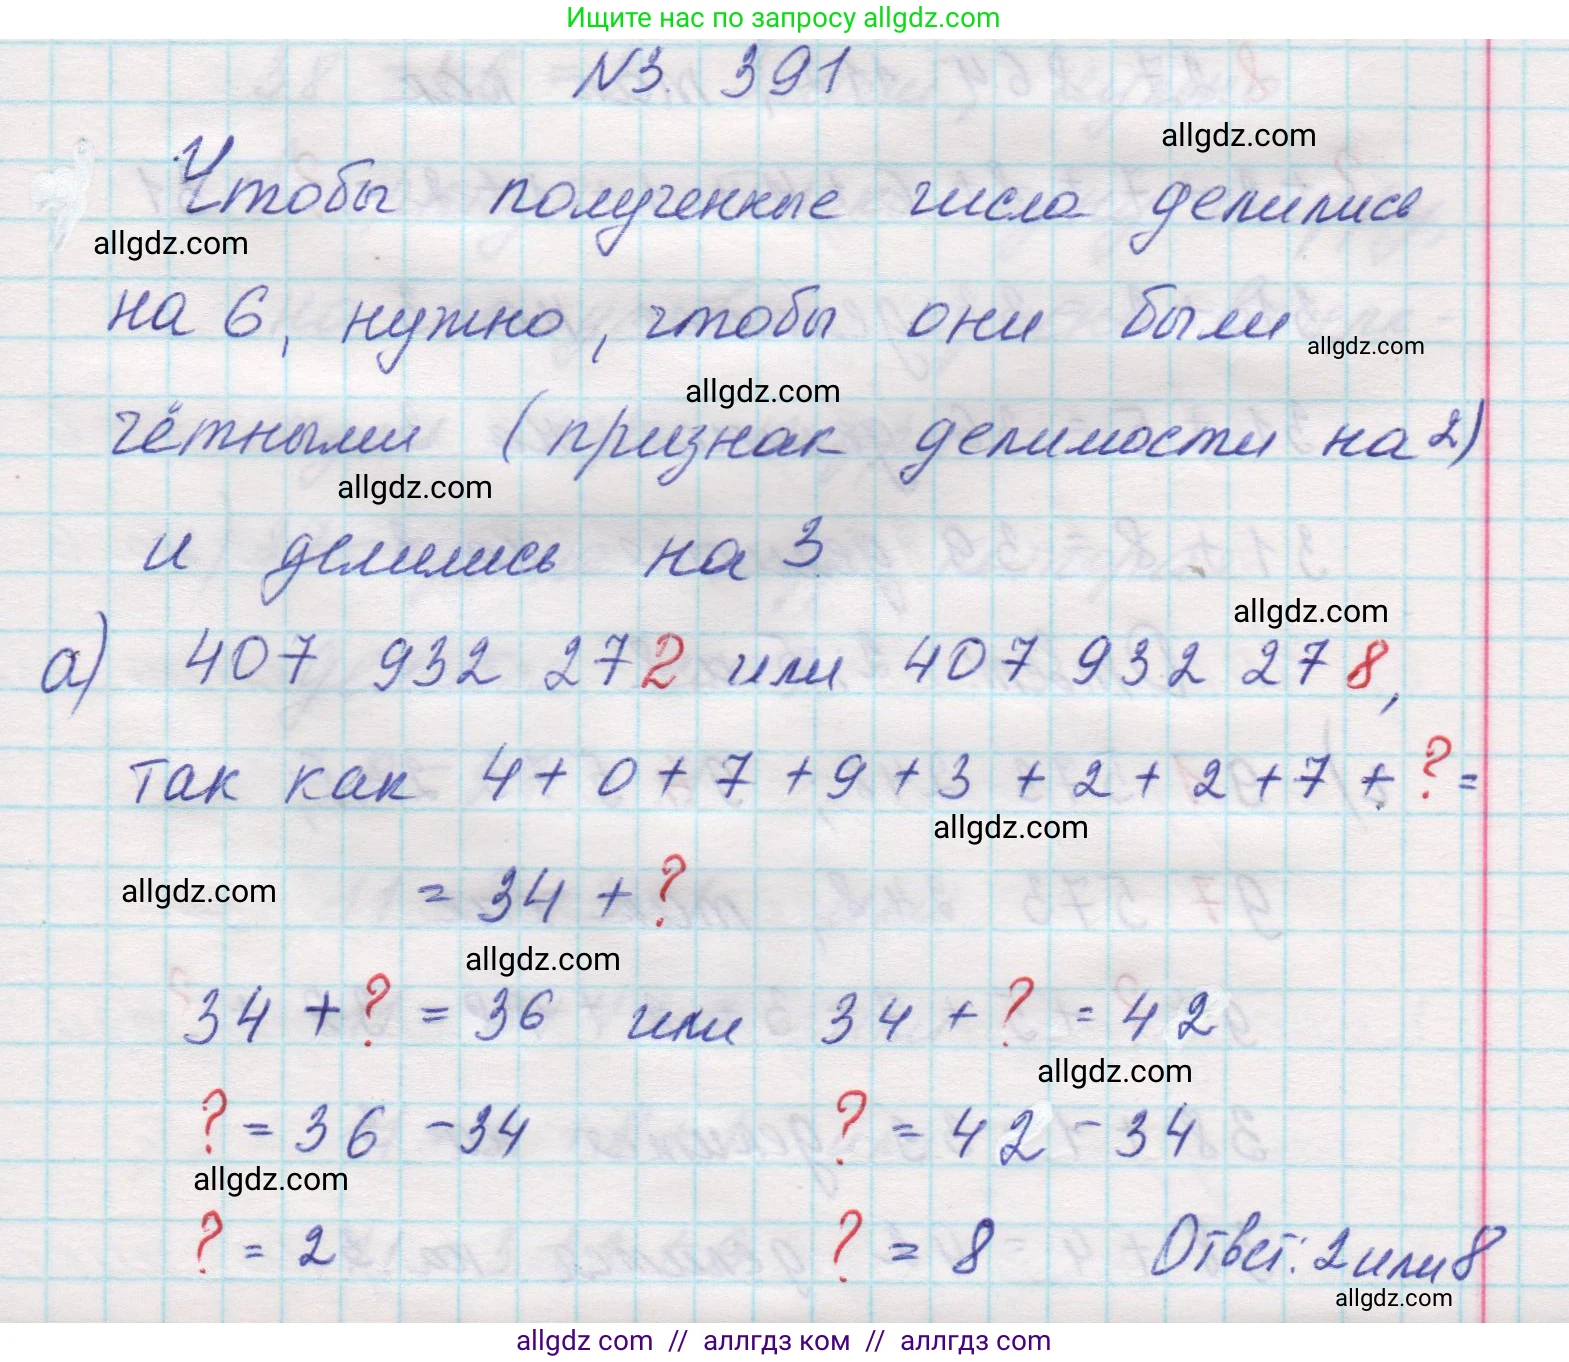 Ищите нас по запросу allgdz.com
N3. 391
allgdz.com
Чтобы полученные числа делились
allgdz.com
на 6, нужно, чтобы они были
allgdz.com
allgdz.com
чётными (признак делимости на 2)
allgdz.com
и делились на 3
allgdz.com
а) 407 932 272 или 407 932 278,
так как 4+0+7+9+3+2+2+7+?=
allgdz.com
allgdz.com
=34+?
allgdz.com
34+?=36 или 34+?=42
allgdz.com
?=36-34 ?=42-34
allgdz.com
?=2 ?=8 Ответ: 2 или 8
allgdz.com
allgdz com // аллгдз ком // аллгдз.com